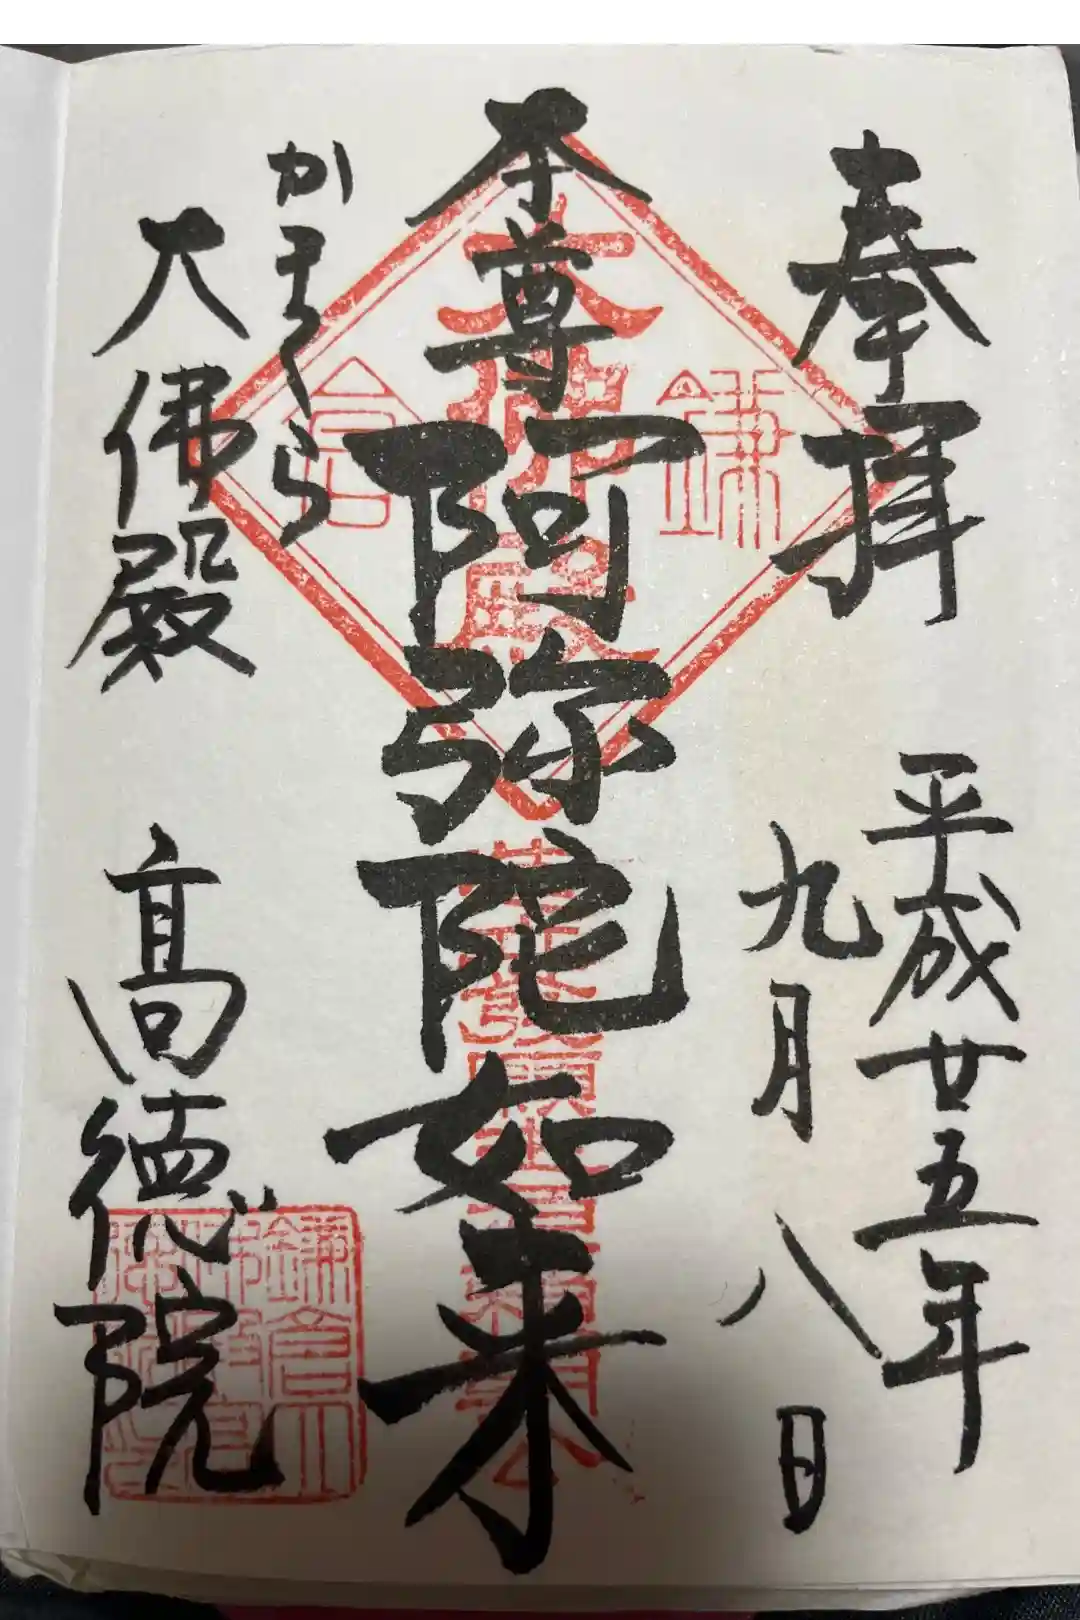 奉拝
平成廿五年
九月八日
本尊
阿弥陀如来
かまくら
大佛殿
高徳院
鎌倉
大佛殿